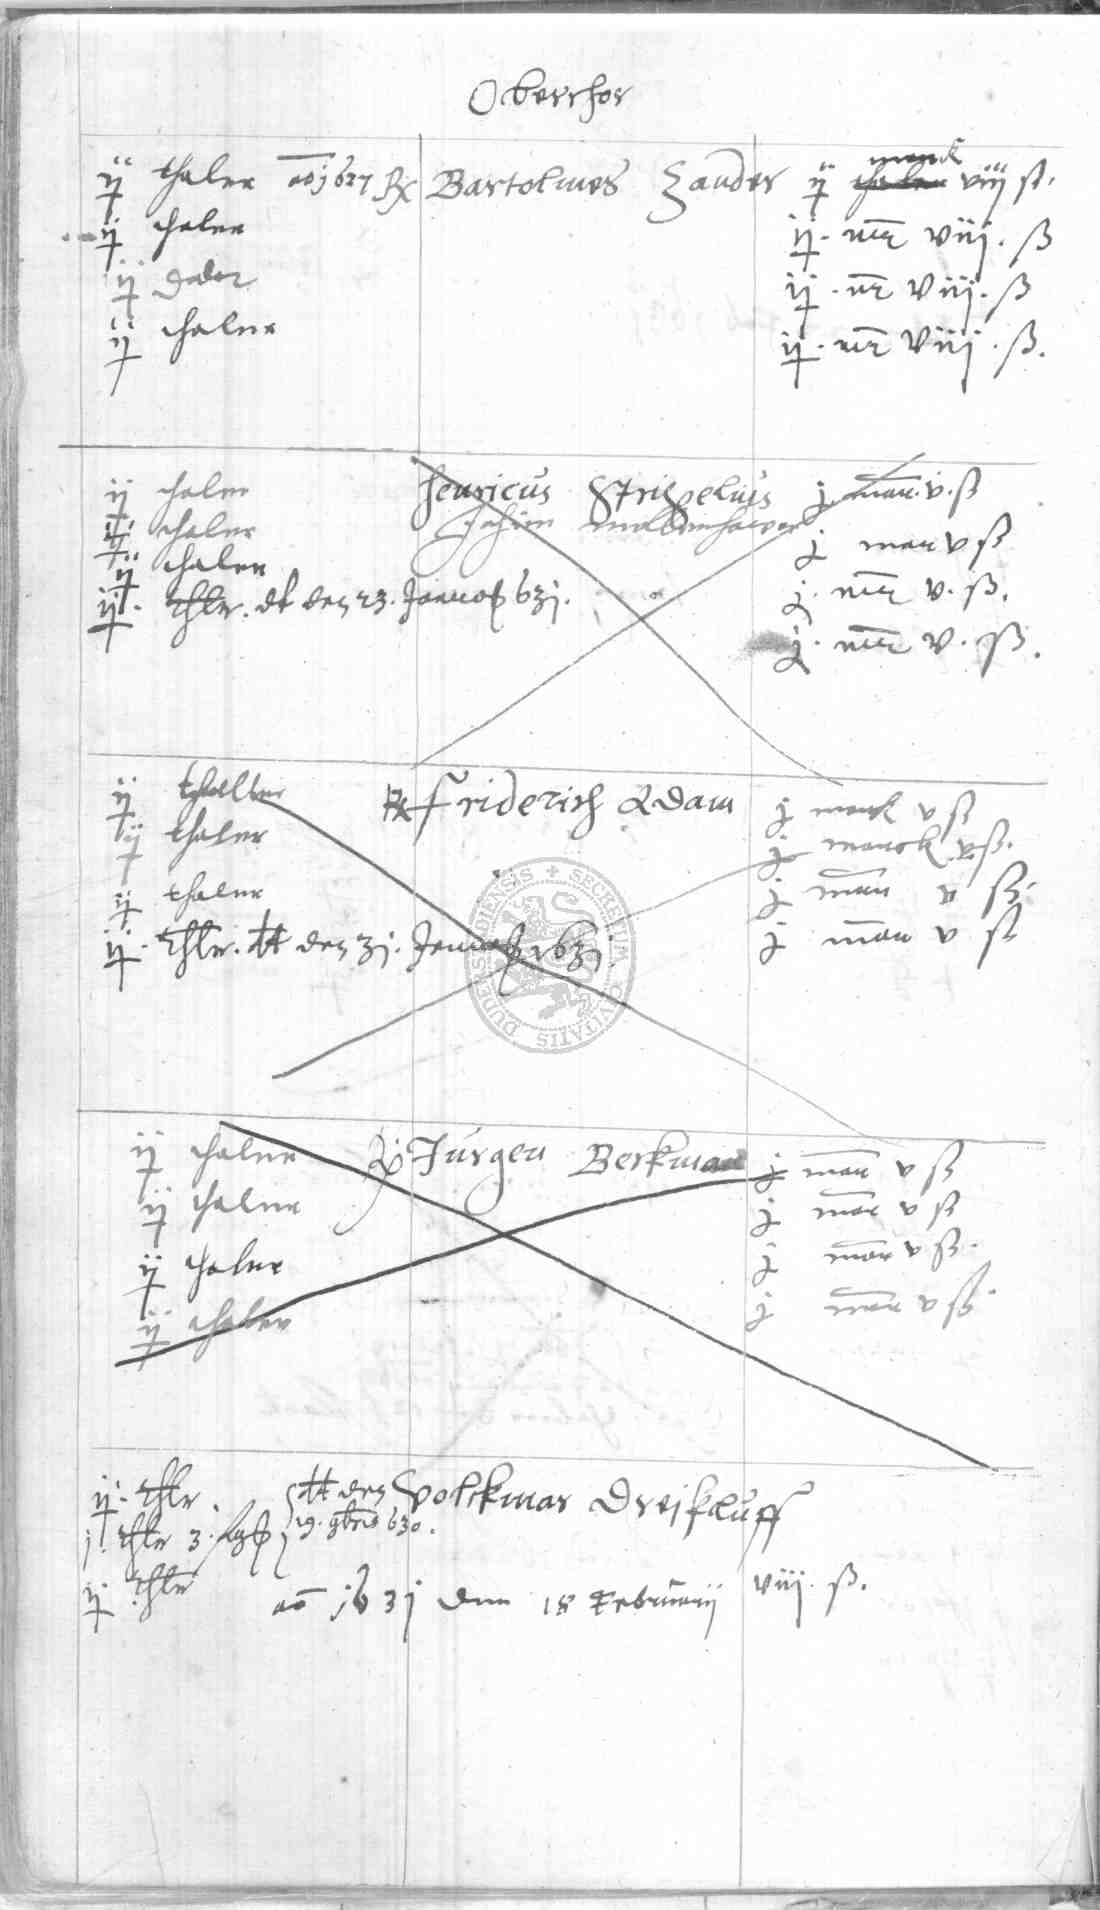 Oberchor
ij thaler ao 1627 Bartolmes Zander ij marck viij ß.
ij thaler ij. mr viij. ß
ij daler ij. mr viij. ß
ij thaler ij. mr viij. ß.
ij thaler Henricus Strigelius j. mar. v. ß
ij thaler Jochim
ij thaler j mar v ß
ij. thlr. dt den 23. 631. j. mr v. ß.
j. mr v. ß.
ij thaller Friderich Adam j marck v ß
ij thaler j marck v ß.
ij thaler j mar v ß.
ij. thlr. dt den 31. 1631. j mar v ß
ij thaler Jürgen Berkman j mar v ß
ij thaler j mar v ß
ij thaler j mar v ß.
ij thaler j mar v ß.
ij. thlr dt den Volckmar Dreifluff
j. thlr 3. 19. 9bris 630.
ij. thlr ao 1631 den 18 Februarii viij. ß.
SECRETUM CIVITATIS DUDERSTADIENSIS